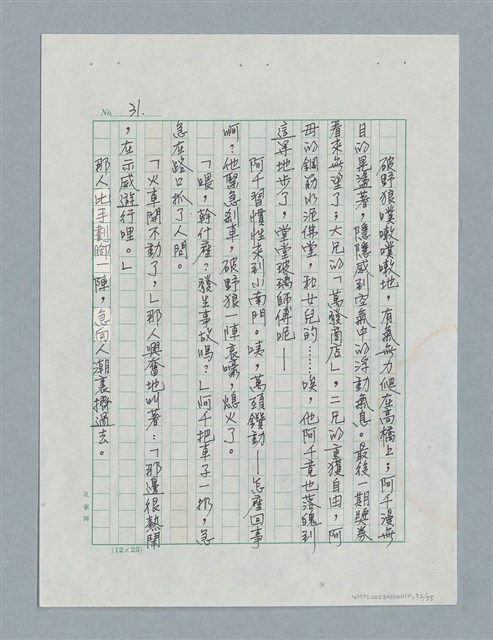 No. 31.
破野狼噗噭噗噭地，有氣無力爬在高橋上；阿千漫無
目的晃盪著，隱隱感到空氣中的浮動氣息。最後一期獎券
看來無望了；大兄的「萬發商店」，二兄的重獲自由，阿
母的鋼筋水泥佛堂，和女兒的……唉，他阿千竟也落魄到
這渾地步了，堂堂玻璃師傅呢——
阿千習慣性來到小南門。咦，萬頭鑽動——怎麼回事
啊？他緊急剎車，破野狼一陣哀嚎，熄火了。
「喂，幹什麼？發生事故嗎？」阿千把車子一拐，急
急在路口抓了人問。
「火車開不動了，」那人興奮地叫著：「那邊很熱鬧
，在示威遊行哩。」
那人比手劃腳一陣，急向人潮裏擠過去。
(12×25)